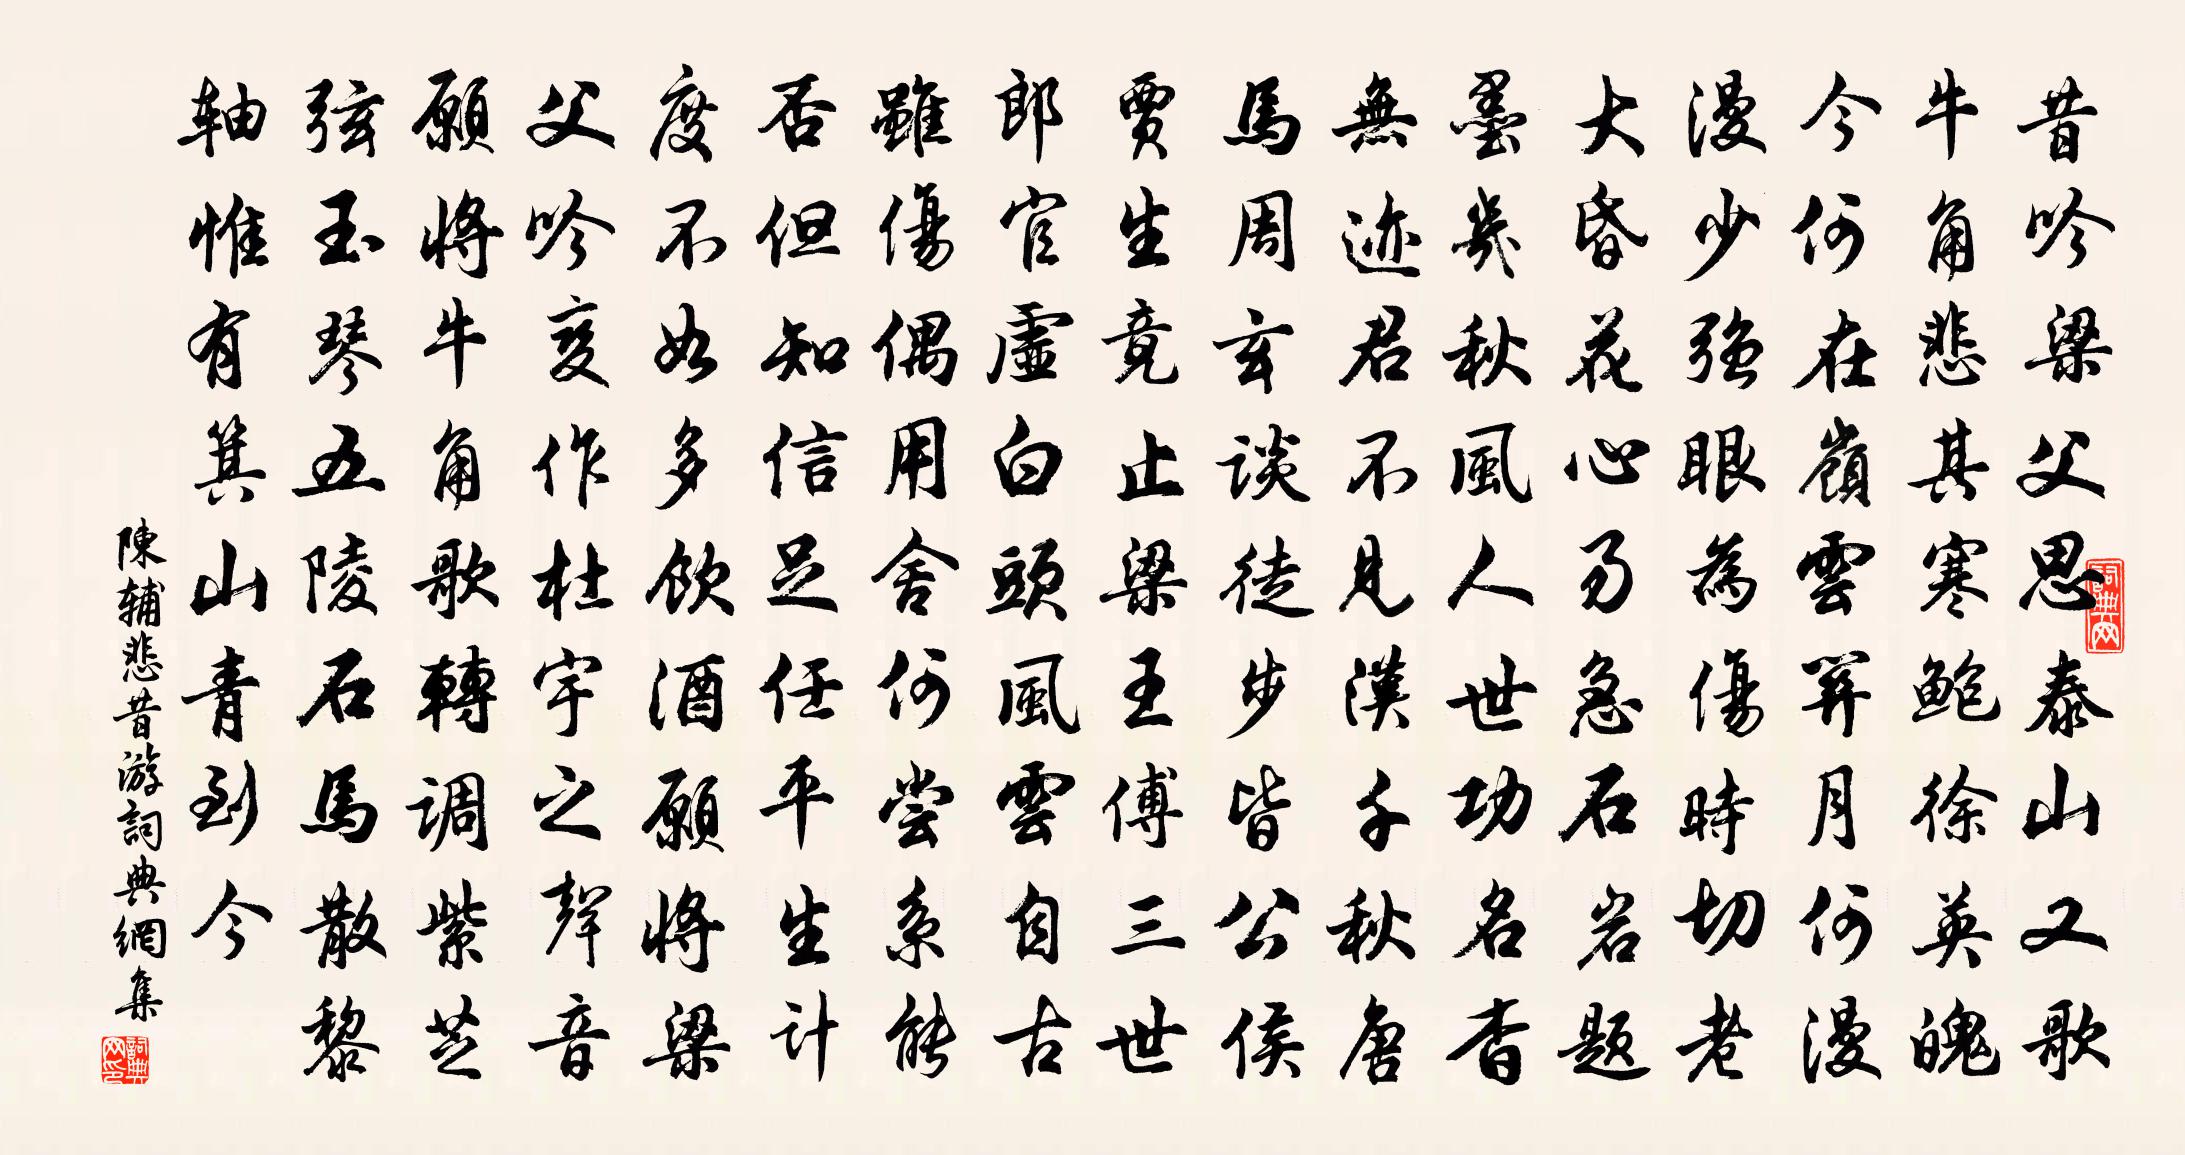 昔吟梁父思泰山又歌
牛角悲其寒鮑徐英魄
今何在嶺雲算月何漫
漫少强眼為傷時切老
大昏花心易急石岩題
墨幾秋風人世功名杳
無迹君不見漢千秋唐
馬周玄談徒步皆公侯
賈生竟止梁王傅三世
郎官虛白頭風雲自古
雖傷偶用舍何尝系能
否但知信足任平生计
度不如多飲酒願將梁
父吟变作杜宇之聲音
願將牛角歌轉調紫芝
弦玉琴五陵石馬散黎
軸惟有箕山青到今
陳輔悲昔游詞典網集
詞典网
詞典网印